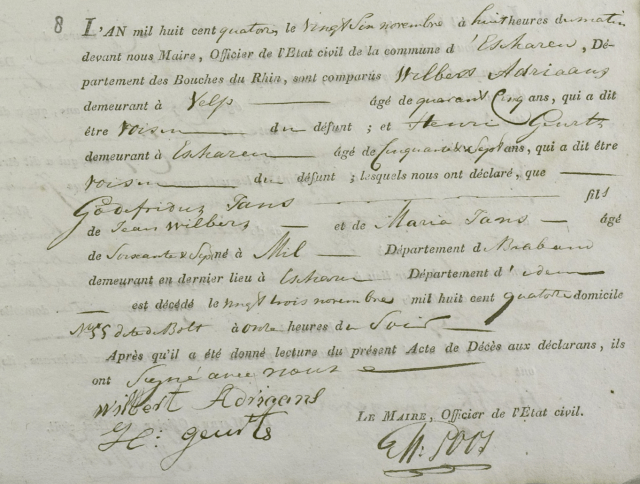 8 L'AN mil huit cent quatorze le vingt six novembre à huit heures du matin
devant nous Maire, Officier de l'Etat civil de la commune d'Escharen, Dé-
partement des Bouches du Rhin, sont comparus Wilbers Adriaans
demeurant à Velp âgé de quarante Cinq ans, qui a dit
être voisin du défunt ; et Henri Geurts
demeurant à Escharen âgé de Cinquante Sept ans, qui a dit être
voisin du défunt ; lesquels nous ont déclaré, que
Godefridus Jans fils
de Jean Wilbers et de Maria Jans âgé
de Soixante né à Mil Département de Braband
demeurant en dernier lieu à Escharen Département d'idem
est décédé le vingt trois novembre mil huit cent quatorze domicile
No 55 à onze heures du Soir
Après qu'il a été donné lecture du présent Acte de Décès aux déclarans, ils
ont Signé avec nous
Wilbert Adrigans
H: geurts
LE MAIRE, Officier de l'Etat civil.